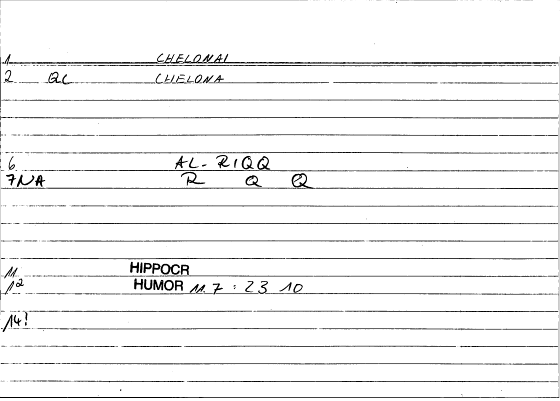 1 CHELONAI
2 QC CHELONA
6 AL-RIQQ
7NA R Q Q
11 HIPPOCR
12 HUMOR 11.7 : 23 10
14!